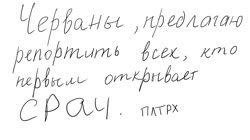 Черваны, предлагаю
репортить всех, кто
первым открывает
СРАЧ. ПЛТРХ